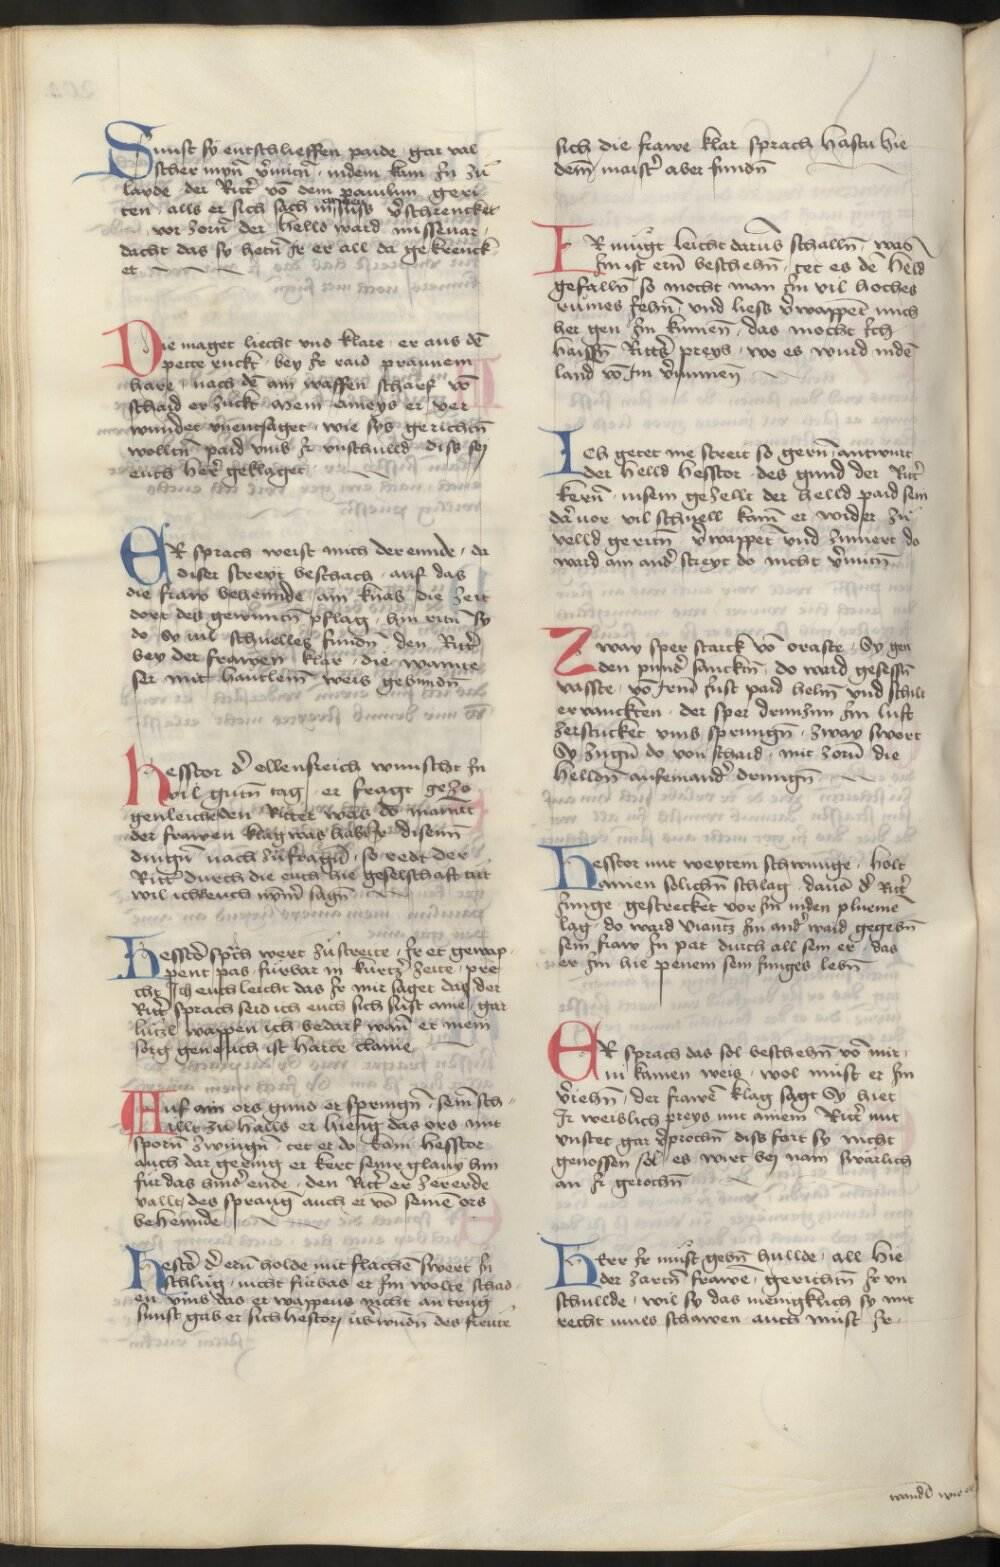 Sunst sy entschlieffen paide · gar val
scher myn̄ v̾mitn̄ · indem kam Jn zu
layde · der Ritt̾ vō dem pauilun geri
ten · alls er sich sach v̾schrencket
vor zorn̄ der helld ward missenar ·
dacht das sy hetn̄ Jr er all da gekrenck
et
Die maget liecht vnd klare · er aus dē
pette ruckt · bey Jr raid praunem
hare · nach dē ain waffen scharf vō
schaid er zuckt Mein ameys er ver
wundet vnentsaget · wie sys gerichtn̄
wolltn̄ paid vms Jr vnschulld diss sej
euch her̾ geklaget
ER sprach weist mich der ennde · da
diser streyt beschach · auf das
die fraw behennde · ain knab die zeit
dort des gewunn̄ pflag · hin ritn̄ sy
do · Sy vil schnelles fundn̄ den Ritt̾
bey der frawen klar · die wainte
ser mit hantlein weis gebundn̄
Hesstor d̾ ellensreich wunscht Jn
vil gutn̄ tag · er fragt gezo
genleich den Ritter was do
der frawen klag was hab Jr disenn
dingn̄ nach zu fragn̄ · so redt der
Ritt̾ durch die euch hie geselschaft tut
wil ich euch sagn̄
Hesstor sprach wert zu streite · Jr et gewap ·
pent pas · furbar in kurtz̾ zeite · pre
che Jch euch leicht das Jr mir saget das der
Ritt̾ sprach seid ich euch sich sust aine · gar
lutzl wappen ich bedarf wan̄ et mein
sorg gen euch ist harte claine
Auf ain ors gund er springn̄ · sein sch
illt zu halls er hieng das ors mit
sporn̄ zwingn̄ · tet er do kam Hesstor
auch dar geeing er kert seine glauy hin
fur das hind̾ ende · den Ritt̾ er zererde
vallt des sprang auch er vō seinē ors
behennde
Hestor d̾ ern̄ holde mit flachē swert Jn
schlug · nicht furbas er Jm wolte schad
en vms das er wappens nicht an trug
sunst gab er sich hestorj ub̾wundn̄ des freute
sich die frawe klar sprach hastu hie
dein̄ maist̾ aber fundn̄
ER mugt leicht darūs schalln̄ was
Jm ist ern̄ beschehn̄ · tet es dē held
gefalln̄ so mocht man Jm vil hoches
rumes Jehn̄ · vnd liess v̾wappet mich
her gen Jm kumen · das mocht Jch
haissn̄ Ritt̾s preys · wo es wurd inden
land vō Jm v̾nummen
Jch getet nie streit so gern̄ antwurt
der helld Hesstor · des gund der Ritt̾
kern̄ · in sein gezellt der helld paid sein
dar̾ uor vil schnell kam er wider zu
velld geritn̄ v̾wappet vnd zimiert do
ward ain and̾ streyt do nicht v̾mitn̄
Zway sper starck vō oraste · Sy gen
den puns̾ sanckten · do ward gesessn̄
vasste · vō Jrm̄ Just paid helm̄ vnd schilt
erwanckten · der sper drunzun Jn luft
zerstucket vms sprungn̄ · zway swert
Sy zugn̄ do von schaid · mit zorn̄ die
helldn̄ aufeinand̾ drungn̄
Hesstor mit weytem schwunge · holt
ainen solichn̄ schlag · dauō d̾ Ritt̾
Junge · gestrecket vor Jm inden pluemē
lag · do ward viantz Jm and̾ waid gegebn̄
sein fraw Jn pat durch all sein er · das
er Jm hie penem sein Junges lebn̄
ER sprach das sol beschehn̄ vō mir ·
in kainen weis · wol must er Jm
v̾iehn̄ · der frawē klag sagt Sy hiet
Jr weislich preys mit ainem Ritt̾ mit
vnstet gar v̾prochn̄ diss fort sy nicht
genossen sol · es wirt bej nam swarlich
an Jr gerochn̄
Herr Jr must gebn̄ hullde · all hie
der zartn̄ frawē · gerichtn̄ Jr vn
schullde · wil sy das meingklich sy mit
recht mues schawen · auch must Jr ·